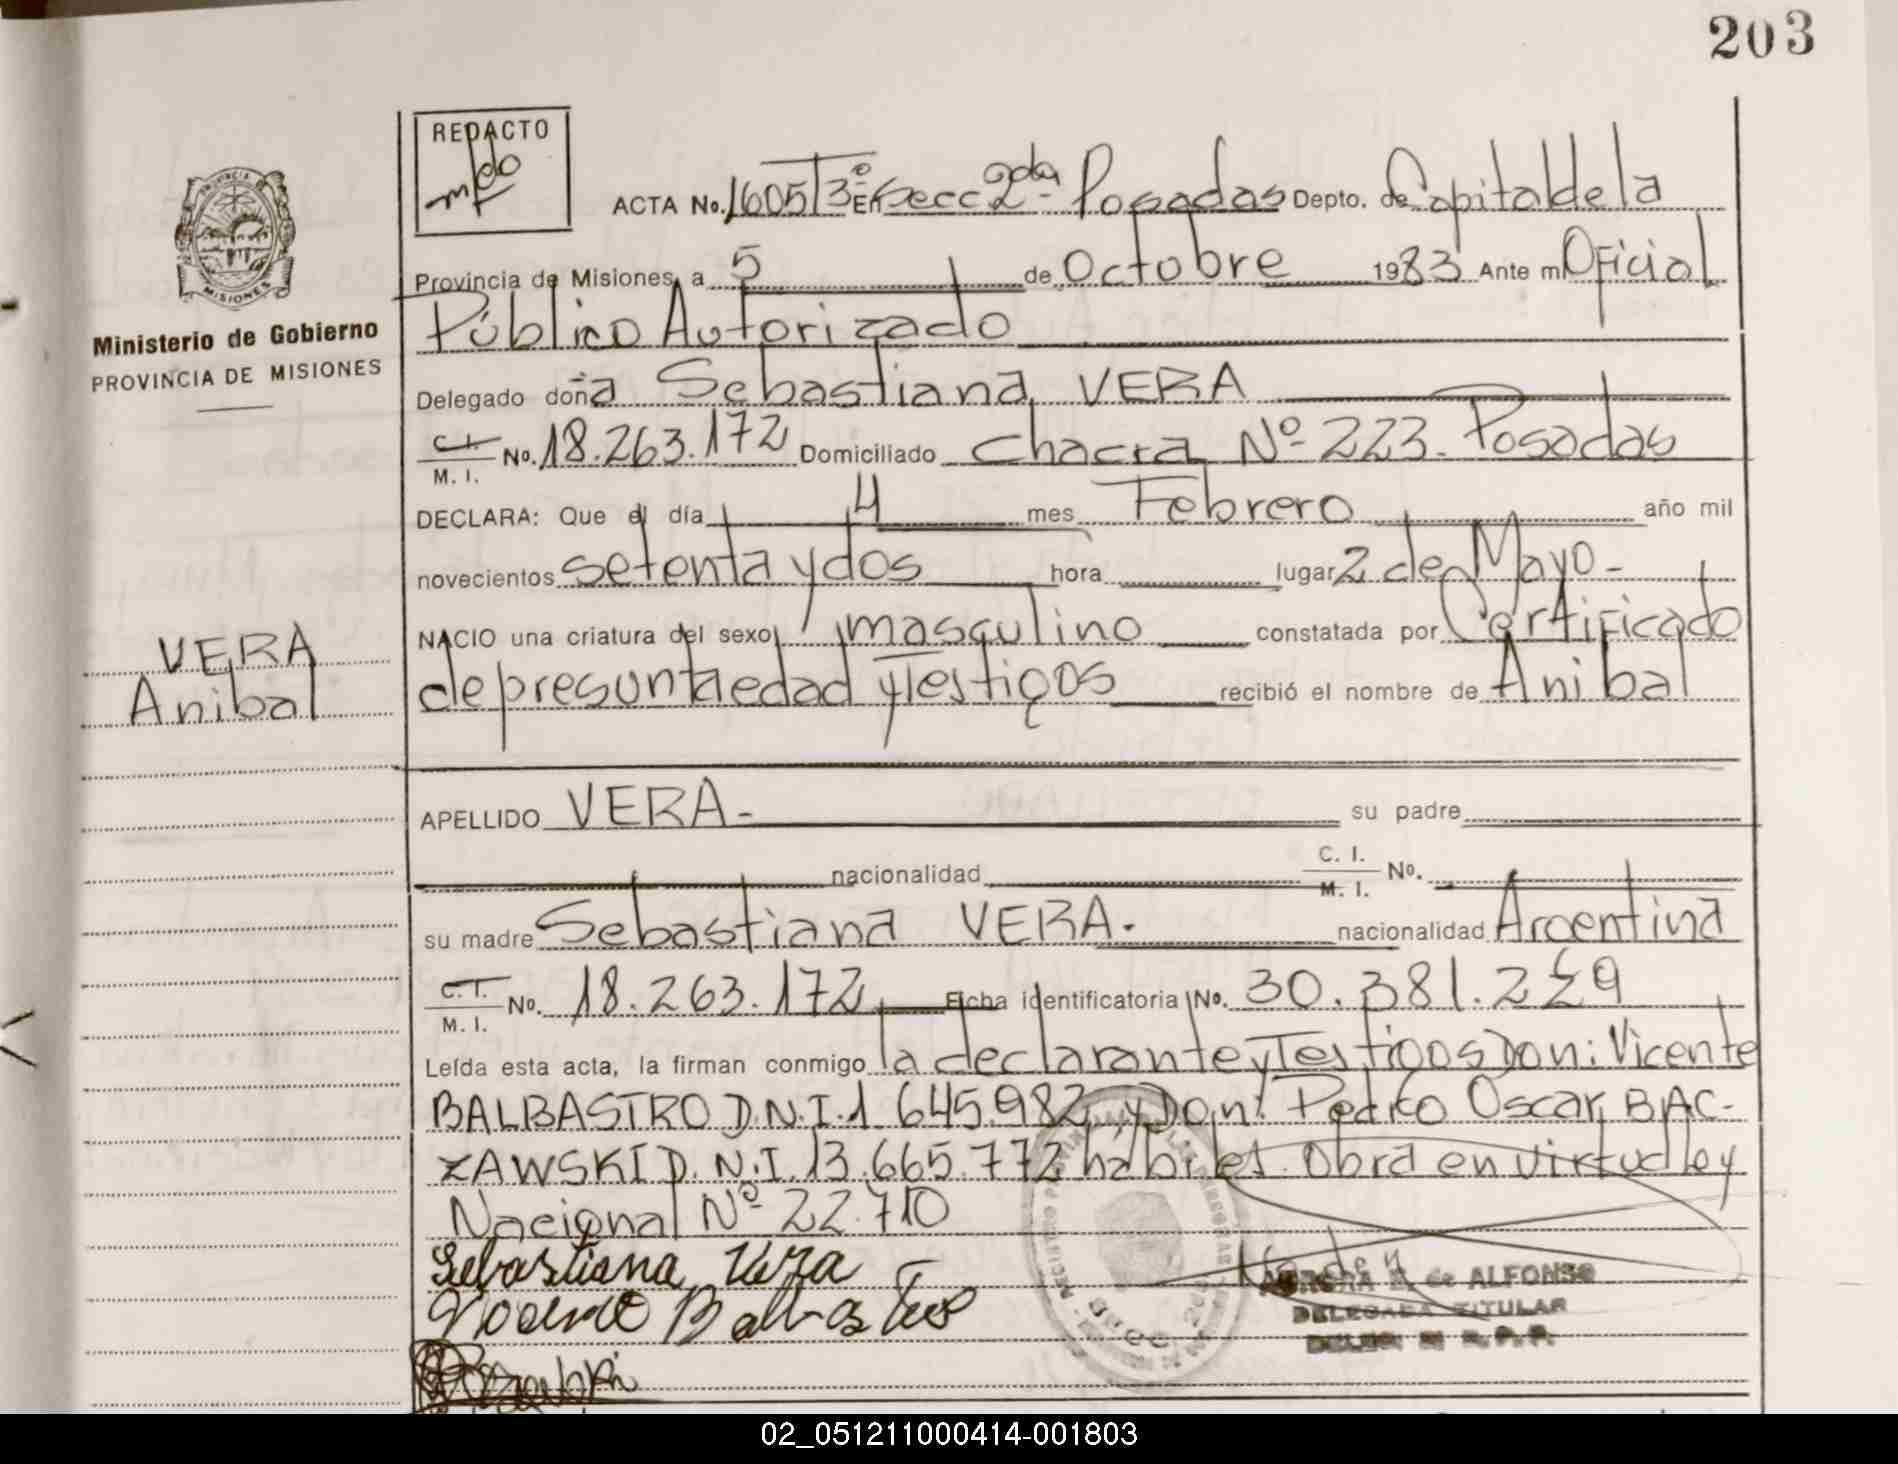 203
REDACTO
ACTA No. 1605 T 3º En Secc 2da. Posadas Depto. de Capital de la
Provincia de Misiones, a 5 de Octubre 1983 Ante mi Oficial
Público Autorizado
Delegado doña Sebastiana VERA
C.I. M. I. No. 18.263.172 Domiciliado Chacra Nº 223. Posadas
DECLARA: Que el día 4 mes Febrero año mil
novecientos setenta y dos hora lugar 2 de Mayo-
NACIO una criatura del sexo masculino constatada por Certificado
de presunta edad y Testigos recibió el nombre de Anibal
APELLIDO VERA- su padre
nacionalidad C. I. M. I. No.
su madre Sebastiana VERA. nacionalidad Argentina
C.I. M. I. No. 18.263.172 Ficha identificatoria No. 30.381.229
Leída esta acta, la firman conmigo la declarante y Testigos Don: Vicente
BALBASTRO D.N.I. 1.645.982 y Don: Pedro Oscar BAC-
ZAWSKI D.N.I. 13.665.772 hábiles. Obra en virtud ley
Nacional Nº 22.710
Sebastiana Vera
Vicente Balbastro
AURORA E. de ALFONSO
DELEGADA TITULAR
PROVINCIA DE
MISIONES
Ministerio de Gobierno
PROVINCIA DE MISIONES
VERA
Anibal
02_051211000414-001803